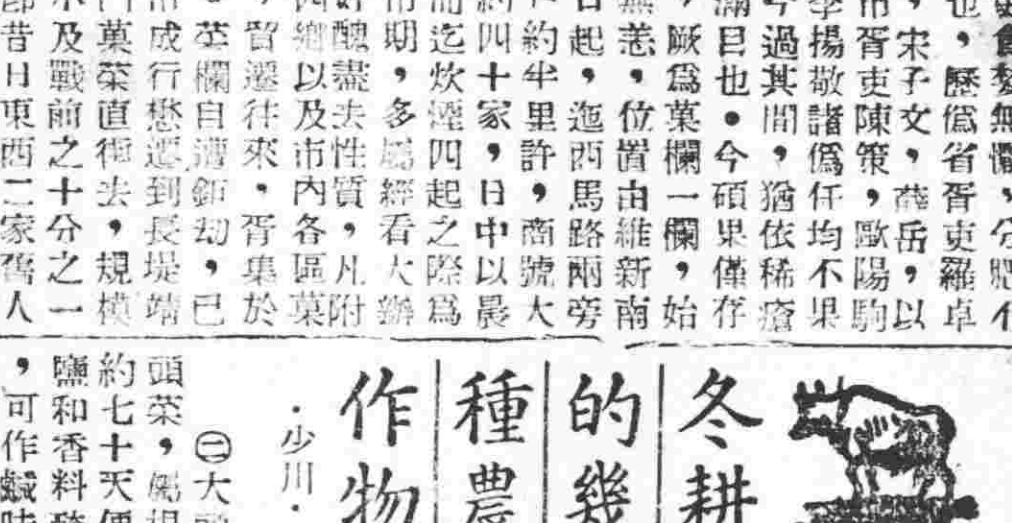 無懼,分肥
也,歷爲省胥吏羅卓
,宋子文,薛岳,以
市胥吏陳策,歐陽駒
李揚敬諸僞任均不果
今過其間,猶依稀瘡
滿目也。今碩果僅存
,厥爲菓欄一欄,始
無恙,位置由維新南
日起,迤西馬路兩旁
約半里許,商號大
約四十家,日中以晨
而迄炊煙四起之際爲
市期,多屬經看大辦
好醜盡去性質,凡附
四鄉以及市內各區菓
,貿遷往來,胥集於
。菜欄自遭鉅劫,已
成行懋遷到長堤端
菓菜直衝去,規模
及戰前之十分之一
昔日東西二家舊人
冬耕
的幾
種農
作物
·少川·
㊁大
頭菜,屬
約七十天便
鹽和香料
,可作鹹味